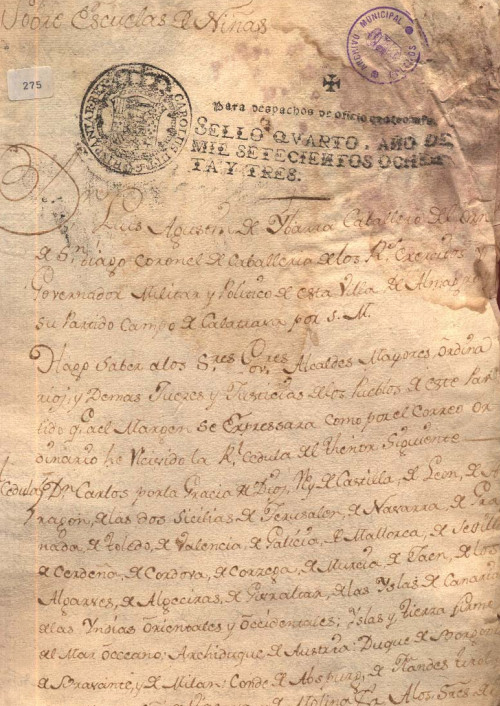 Sobre Escuelas de Niñas
ARCHIVO MUNICIPAL
275
Para despachos de oficio quatro mrs.
SELLO QVARTO, AÑO DE
MIL SETECIENTOS OCHEN
TA Y TRES.
Luis Agustin de Ybarra Caballero del
de Sn. tiago Coronel de Caballeria de los Rs. Exercitos y
Governador Militar y Politico de esta Villa de Almagro
su Partido Campo de Calatrava por S. M.
Hago Saber a los Sres. Alcaldes Mayores, Ordina
rios, y Demas Jueces y Justicias de los Pueblos de este Par
tido q. al Margen se Expressara como por el Correo or
dinario he Recivido la Rl. Cedula del thenor Siguiente
Cedula Dn. Carlos por la Gracia de Dios, Rey de Castilla, de Leon, de A
ragon, de las dos Sicilias de Jerusalen, de Navarra, de Gra
nada, de Toledo, de Valencia, de Galicia, de Mallorca, de Sevilla
de Cerdeña, de Cordova, de Corzega, de Murcia, de Jaen, de los
Algarves, de Algeciras, de Gibraltar, de las Yslas de Canaria
de las Yndias Orientales y Occidentales; Yslas y Tierra firme
del Mar Occeano; Archiduque de Austria; Duque de Borgoña
de Bravante, y de Milan; Conde de Abspurg, de Flandes
de Molina &a. A los Sres. de